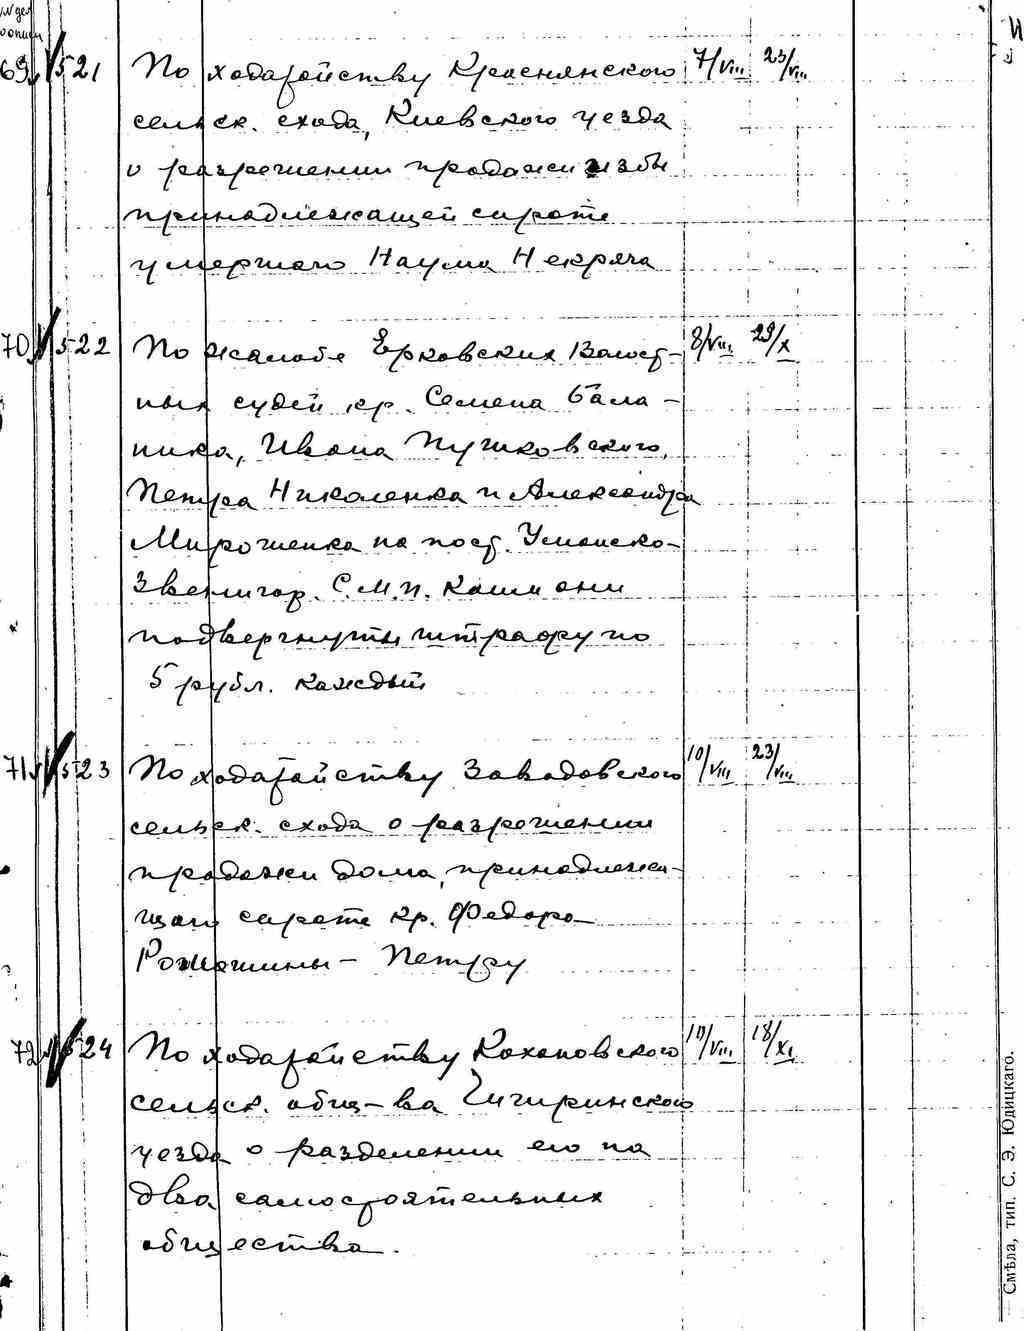 № дел
по описи
69 521 По ходатайству Краснянского 7/VIII 23/VIII
сельск. схода, Киевского уезда
о разрешении продажи избы
принадлежащей сироте
умершаго Наума Некряча
70 522 По жалобе Ерковских Волост- 8/VIII 29/X
ных судей кр. Семена Бала-
ника, Ивана Пушковского,
Петра Николенка и Александра
Мирошенка на пост. Уманско-
Звенигор. С.М.П. коим они
подвергнуты штрафу по
5 рубл. каждый
71 523 По ходатайству Завадовского 10/VIII 23/VIII
сельск. схода о разрешении
продажи дома, принадлежа-
щаго сироте кр. Федора
Рошошины - Петру
72 524 По ходатайству Кохановского 10/VIII 18/XI
сельск. общ-ва Чигиринского
уезда о разделении его на
два самостоятельных
общества.
Смѣла, тип. С. Э. Юдицкаго.